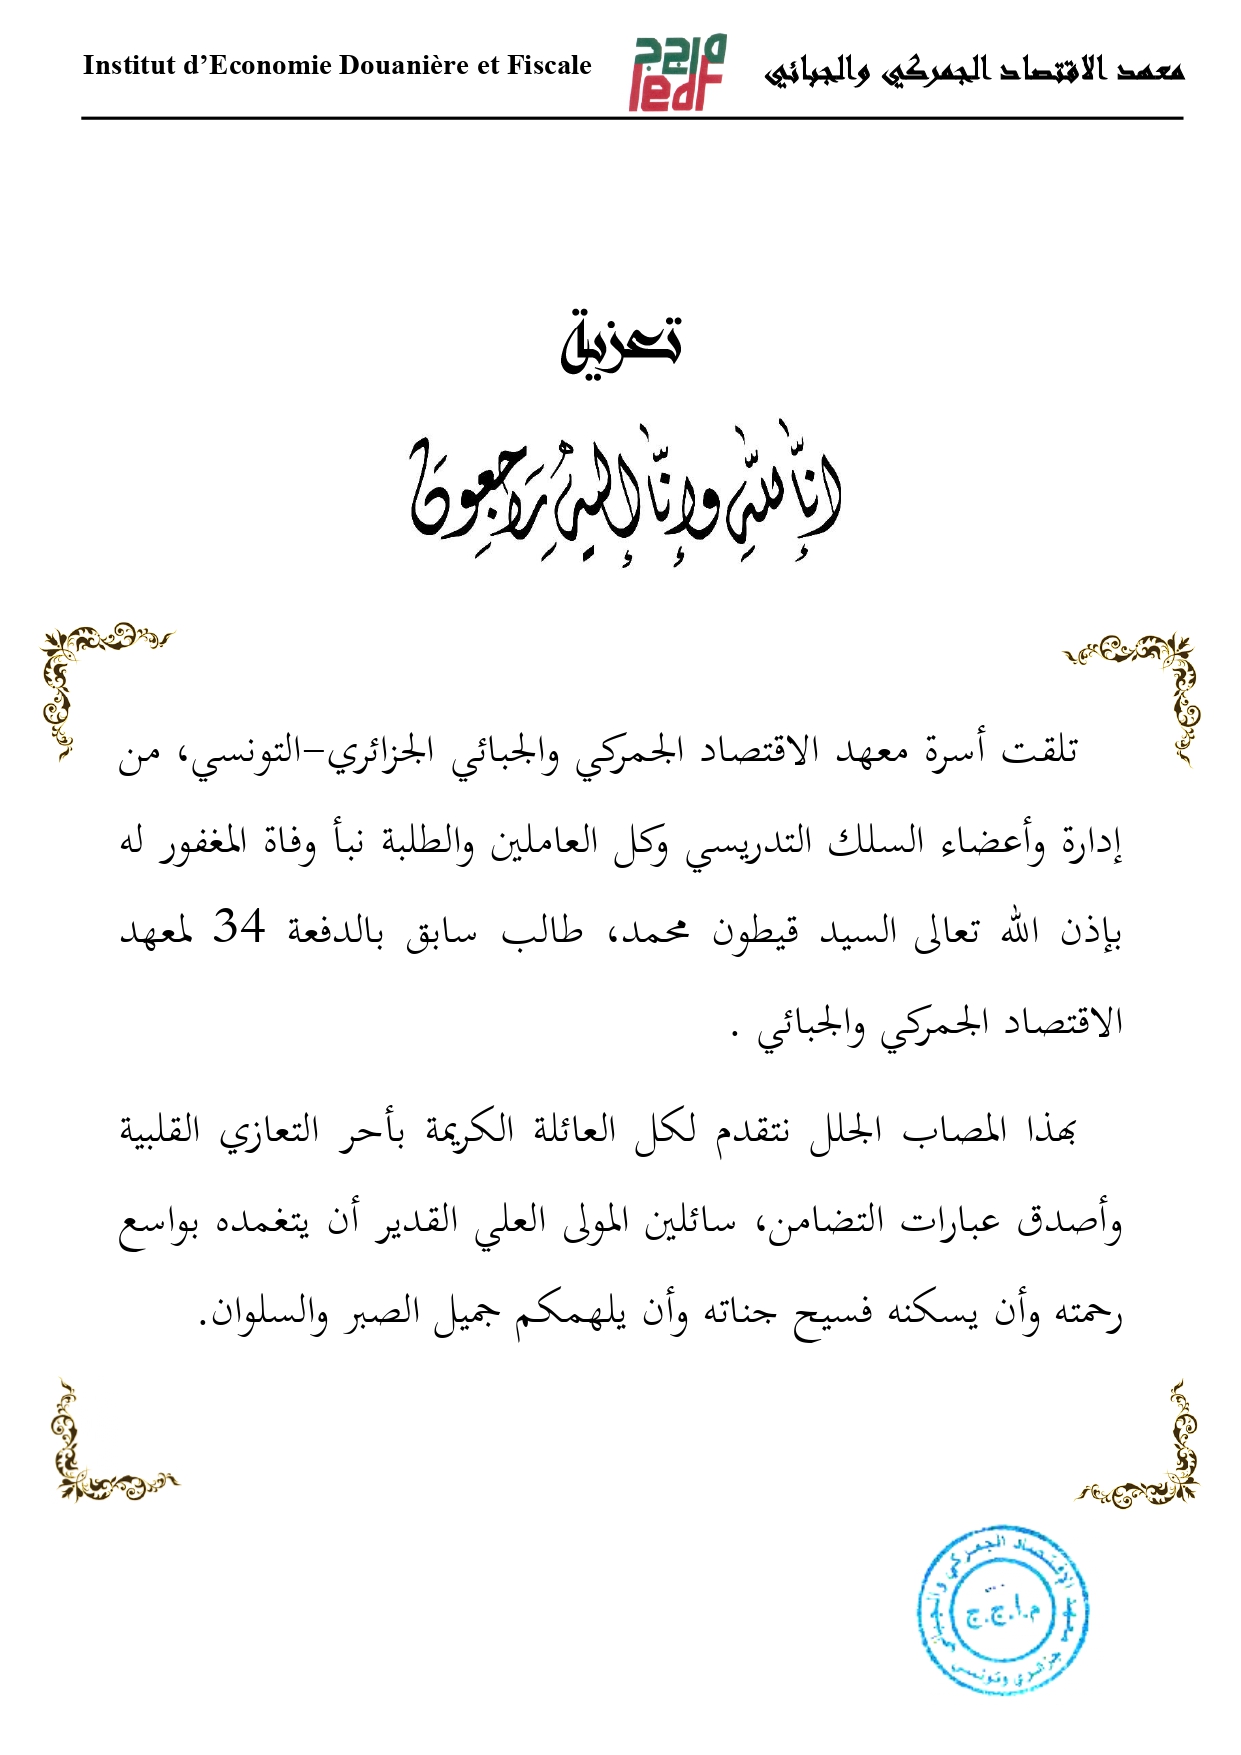 Institut d’Economie Douanière et Fiscale
ماجج
Iedf
معهد الاقتصاد الجمركي والجبائي
تعزية
إنَّا لِلَّهِ وإنَّا إليهِ رَاجِعِونَ
تلقت أسرة معهد الاقتصاد الجمركي والجبائي الجزائري-التونسي، من
إدارة وأعضاء السلك التدريسي وكل العاملين والطلبة نبأ وفاة المغفور له
بإذن الله تعالى السيد قيطون محمد، طالب سابق بالدفعة 34 لمعهد
الاقتصاد الجمركي والجبائي .
بهذا المصاب الجلل نتقدم لكل العائلة الكريمة بأحر التعازي القلبية
وأصدق عبارات التضامن، سائلين المولى العلي القدير أن يتغمده بواسع
رحمته وأن يسكنه فسيح جناته وأن يلهمكم جميل الصبر والسلوان.
معهد الإقتصاد الجمركي والجبائي
م.ا.ج.ج
جزائري وتونسي